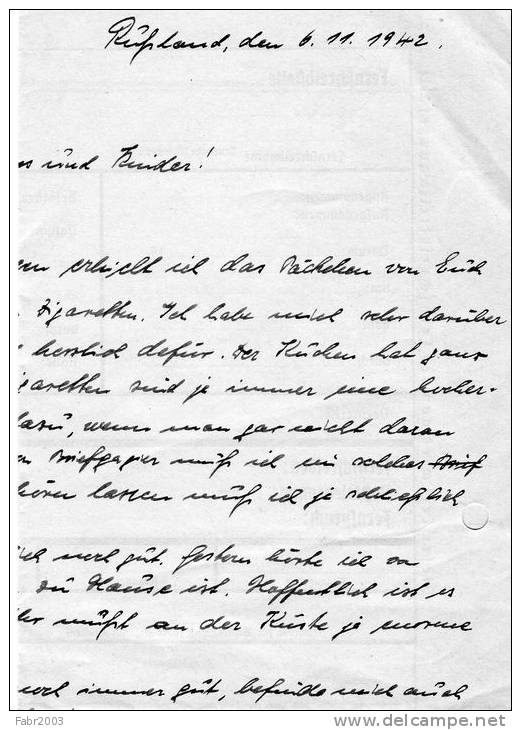 Rußland, den 6. 11. 1942.
und Kinder!
erhielt ich das Päckchen von Euch
Zigaretten. Ich habe mich sehr darüber
herzlich dafür. Der Kuchen hat ganz
sind ja immer eine hocher-
dazu, wenn man gar nicht daran
Briefpapier muß ich ein solches Brief
hören lassen muß ich ja schließlich
noch gut. Gestern hörte ich
zu Hause ist. Hoffentlich ist es
mußt an der Küste ja enorme
noch immer gut, befinde mich auch
Fabr2003
www.delcampe.net